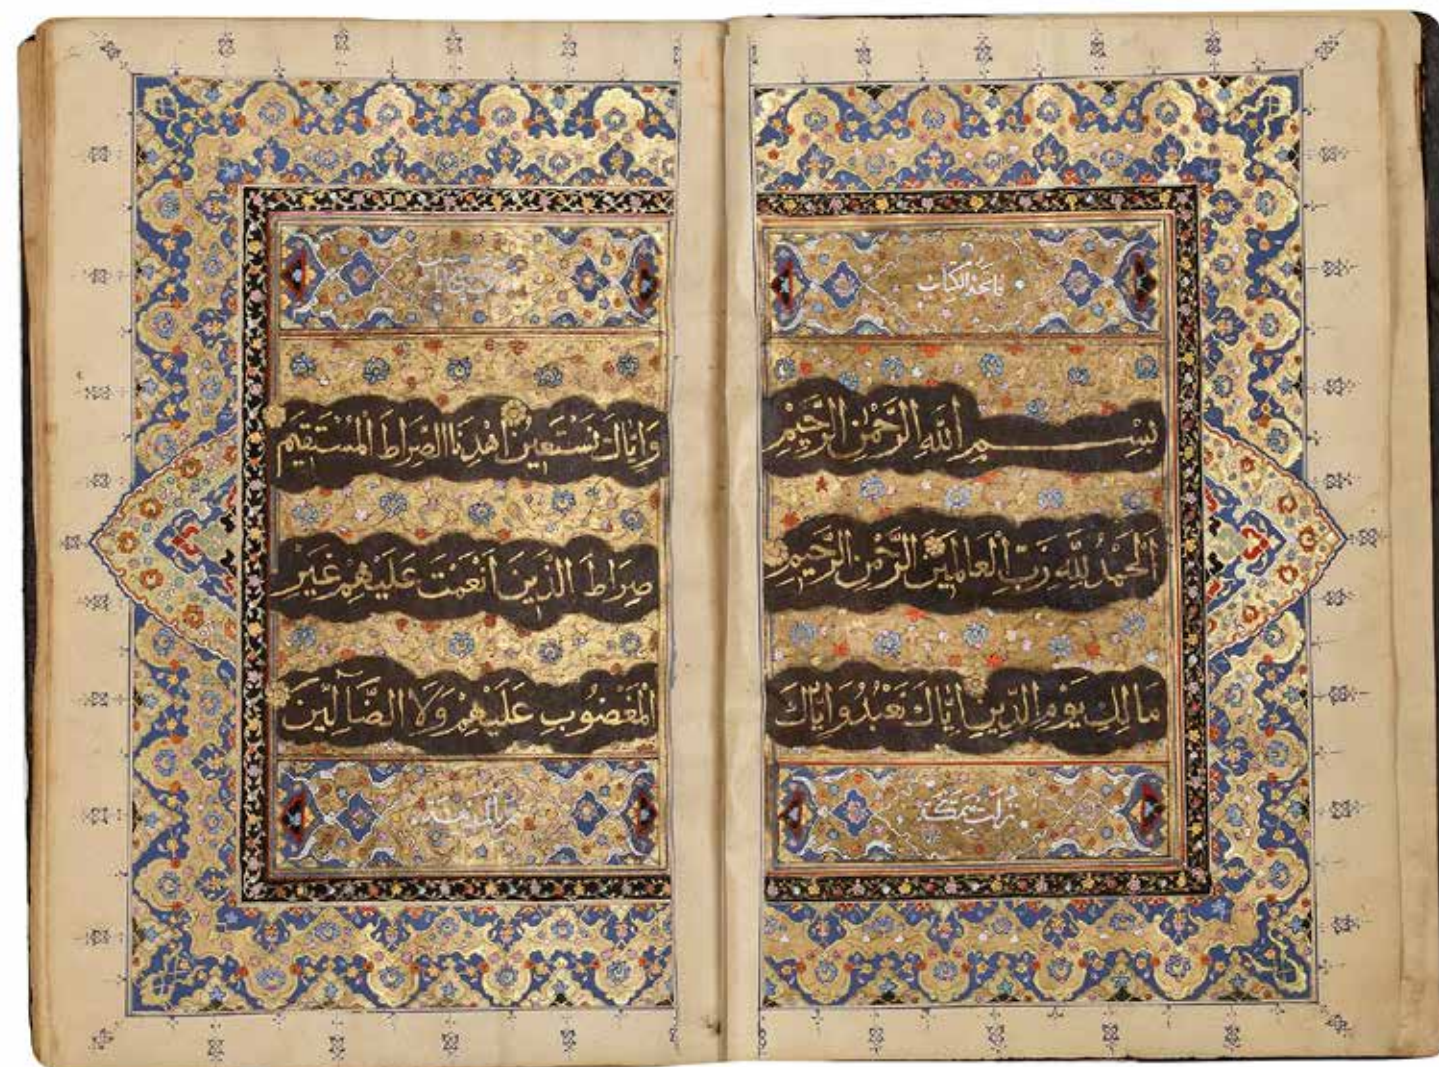 فاتحة الكتاب
بِسْمِ اللهِ الرَّحْمٰنِ الرَّحِيْمِ
اَلْحَمْدُ لِلّٰهِ رَبِّ الْعَالَمِيَن الرَّحْمٰنِ الرَّحِيْمِ
مَالِكِ يَوْمِ الدِّينِ اِيَّاكَ نَعْبُدُ وَاِيَّاكَ
نزلت بمكة
وَاِيَّاكَ نَسْتَعِيْنُ اِهْدِنَا الصِّرَاطَ الْمُسْتَقِيَم
صِرَاطَ الَّذِينَ اَنْعَمْتَ عَلَيْهِمْ غَيْرِ
الْمَغْضُوبِ عَلَيْهِمْ وَلَا الضَّآلِّينَ